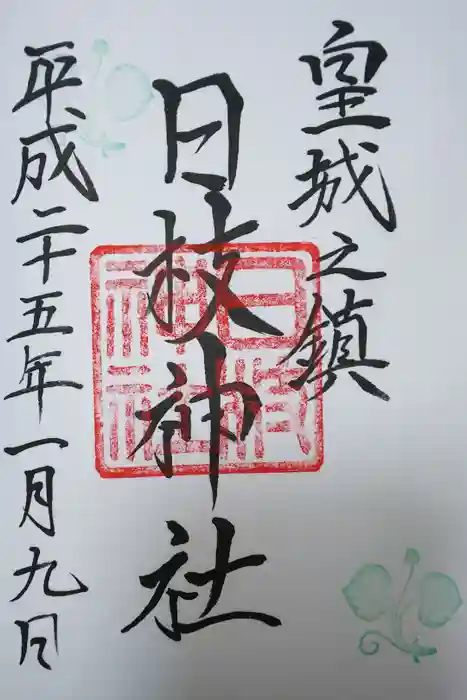 皇城之鎮
日枝神社
平成二十五年一月九日
日枝
神社